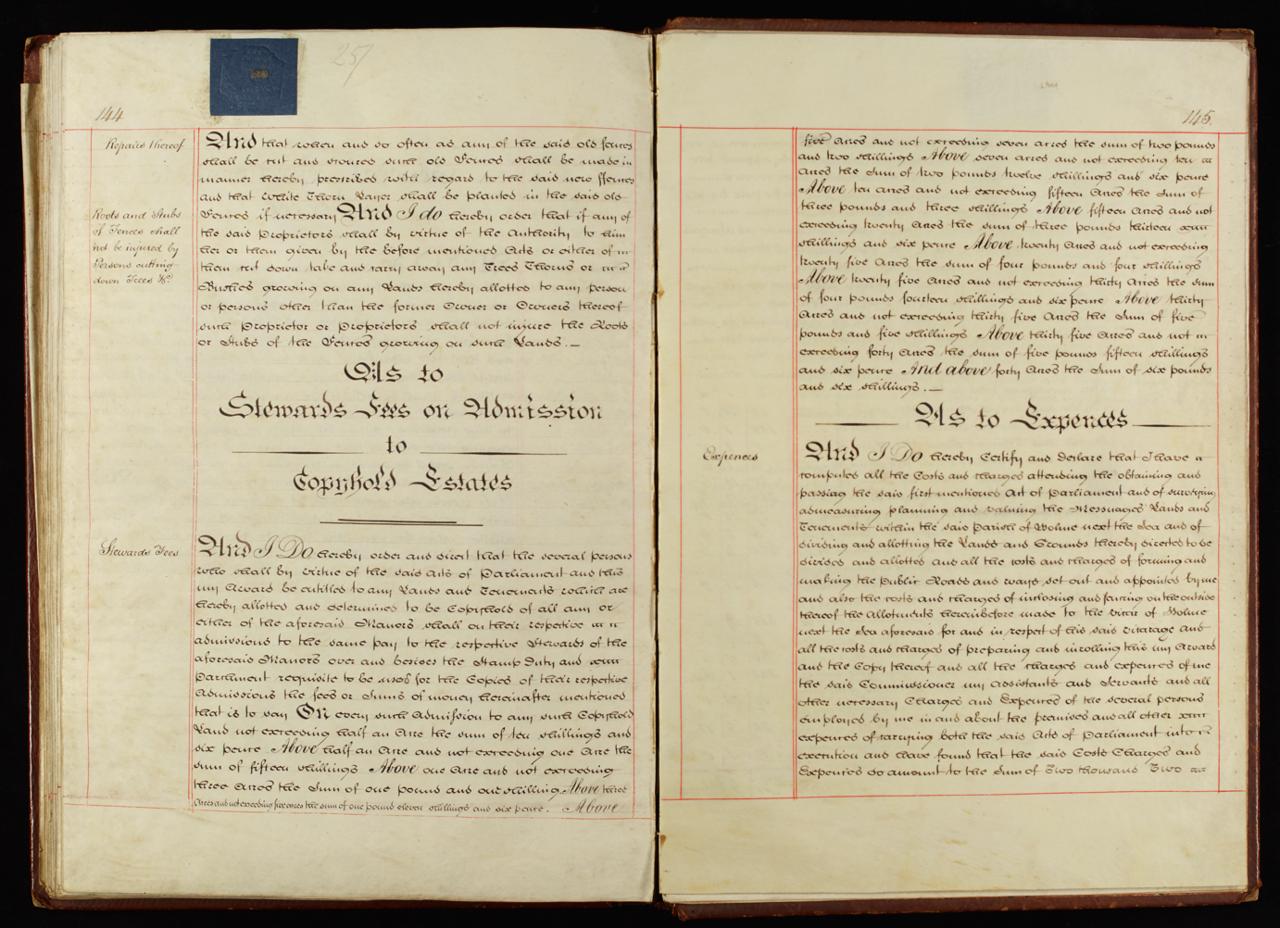 257
144
Repairs thereof
And that when and so often as any of the said old fences
shall be cut and scoured such old Fences shall be made in
manner hereby prescribed with regard to the said new ffences
and that White Thorn Layer shall be planted in the said old
Roots and Stubs
of Fences shall
not be injured by
Persons cutting
down Trees &c.
Fences if necessary And I do hereby order that if any of
the said Proprietors shall by virtue of the Authority to him
her or them given by the before mentioned Acts or either of
them cut down take and carry away any Trees Thorns or
Bushes growing on any Lands hereby allotted to any person
or persons other than the former Owner or Owners thereof
such Proprietor or Proprietors shall not injure the Roots
or Stubs of the Fences growing on such Lands.
As to
Stewards Fees on Admission
to
Copyhold Estates
Stewards Fees
And I Do hereby order and direct that the several persons
who shall by virtue of the said Acts of Parliament and this
my Award be entitled to any Lands and Tenements which are
hereby allotted and determined to be Copyhold of all any or
either of the aforesaid Manors shall on their respective
admissions to the same pay to the respective Stewards of the
aforesaid Manors over and besides the Stamp Duty and
Parchment requisite to be used for the Copies of their respective
Admissions the fees or Sums of money hereinafter mentioned
that is to say On every such Admission to any such Copyhold
Land not exceeding half an Acre the sum of ten shillings and
six pence Above half an Acre and not exceeding one Acre the
sum of fifteen shillings Above one Acre and not exceeding
three Acres the Sum of one pound and one shilling Above three
Acres and not exceeding five acres the sum of one pound eleven shillings and six pence. Above
145.
five Acres and not exceeding seven acres the sum of two pounds
and two shillings Above seven acres and not exceeding ten
Acres the Sum of two pounds twelve shillings and six pence
Above ten acres and not exceeding fifteen Acres the Sum of
three pounds and three shillings Above fifteen Acres and not
exceeding twenty Acres the sum of three pounds thirteen
shillings and six pence Above twenty Acres and not exceeding
twenty five Acres the sum of four pounds and four shillings
Above twenty five Acres and not exceeding thirty Acres the sum
of four pounds fourteen shillings and six pence Above thirty
Acres and not exceeding thirty five Acres the Sum of five
pounds and five shillings Above thirty five Acres and not
exceeding forty Acres the sum of five pounds fifteen shillings
and six pence And above forty Acres the Sum of six pounds
and six shillings.
As to Expences
Expences
And I Do hereby Certify and declare that I have
computed all the Costs and charges attending the obtaining and
passing the said first mentioned Act of Parliament and of surveying
admeasuring planning and valuing the Messuages Lands and
Tenements within the said Parish of Holme next the Sea and of
dividing and allotting the Lands and Grounds thereby directed to be
divided and allotted and all the costs and charges of forming and
making the Public Roads and ways set out and appointed by me
and also the costs and charges of inclosing and fencing on the outside
thereof the Allotments hereinbefore made to the vicar of Holme
next the Sea aforesaid for and in respect of his said vicarage and
all the costs and charges of preparing and inrolling this my Award
and the Copy thereof and all the charges and expences of me
the said Commissioner my Assistants and Servants and all
other necessary Charges and Expences of the several persons
employed by me in and about the premises and all other
expences of carrying both the said Acts of Parliament into
execution and have found that the said Costs Charges and
Expences do amount to the Sum of Two thousand Two